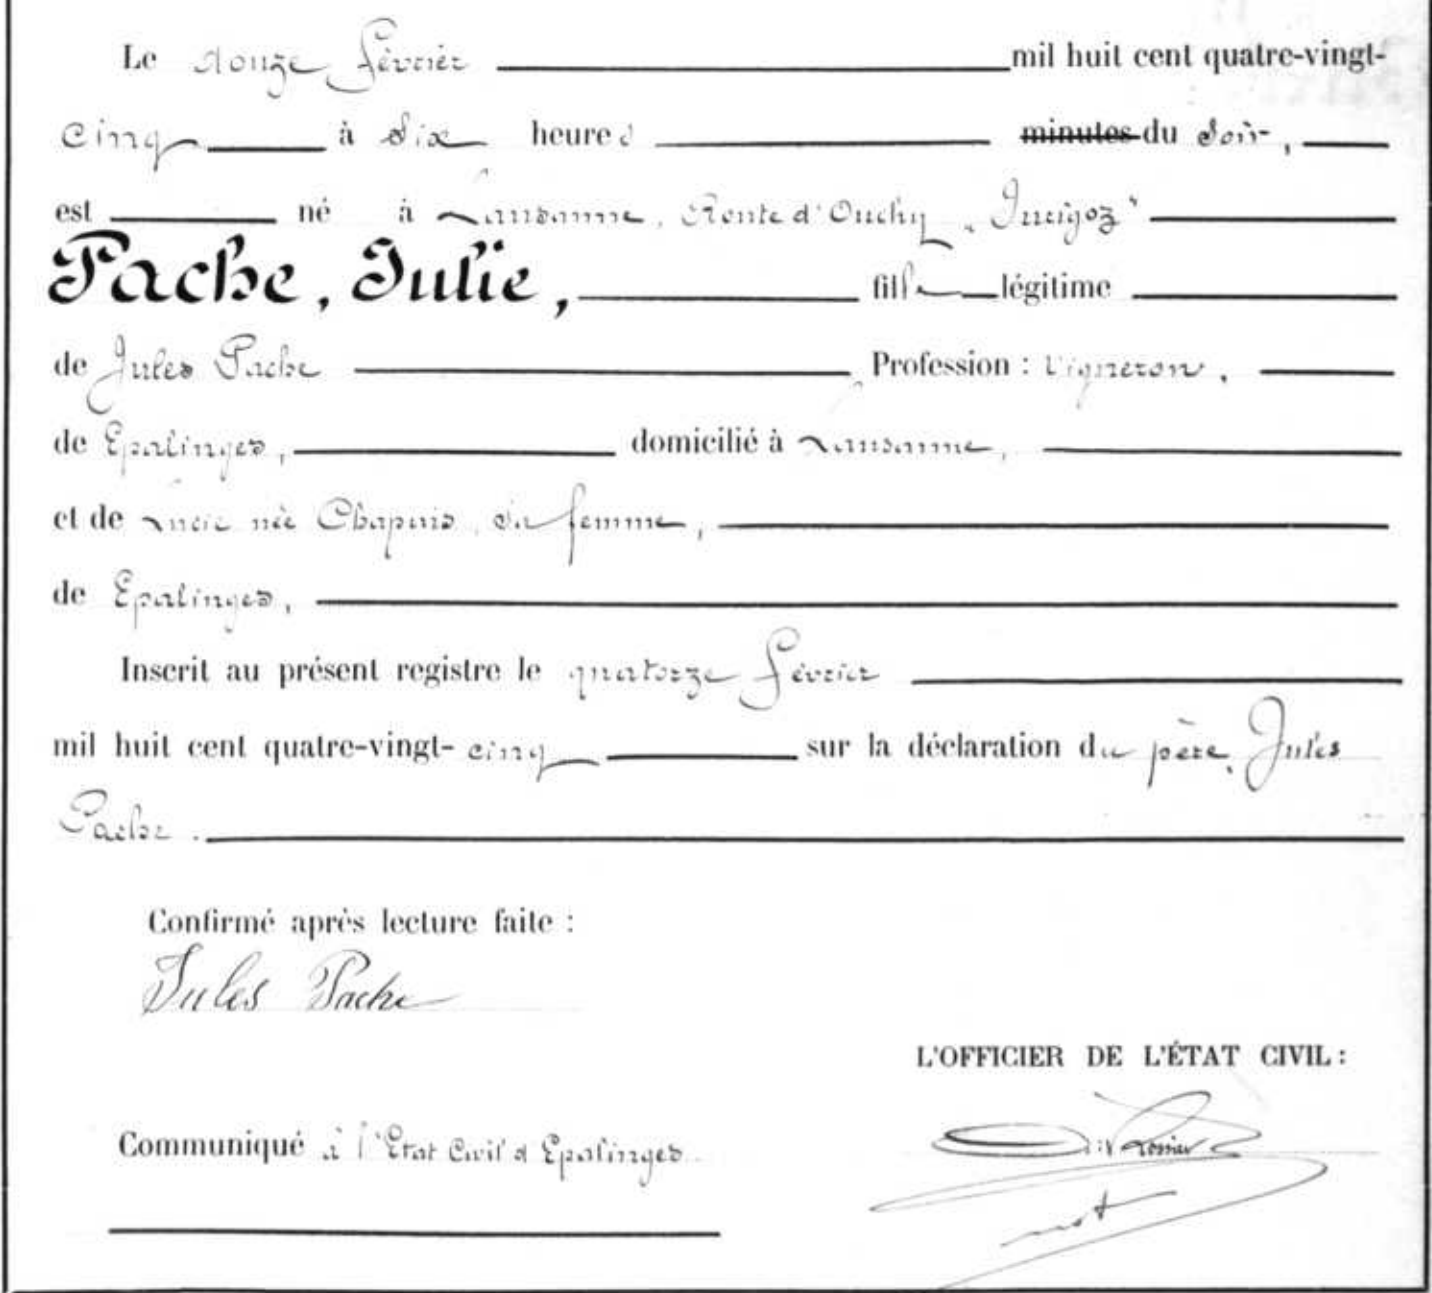 Le douze février mil huit cent quatre-vingt-
cinq à six heures minutes du soir,
est né à Lausanne, Route d'Ouchy
Pache, Julie, fille légitime
de Jules Pache Profession : Vigneron,
de Epalinges, domicilié à Lausanne,
et de Lucie née Chapuis, sa femme,
de Epalinges,
Inscrit au présent registre le quatorze février
mil huit cent quatre-vingt-cinq sur la déclaration du père, Jules
Pache.
Confirmé après lecture faite :
Jules Pache
L'OFFICIER DE L'ÉTAT CIVIL :
Communiqué à l'Etat Civil d'Epalinges